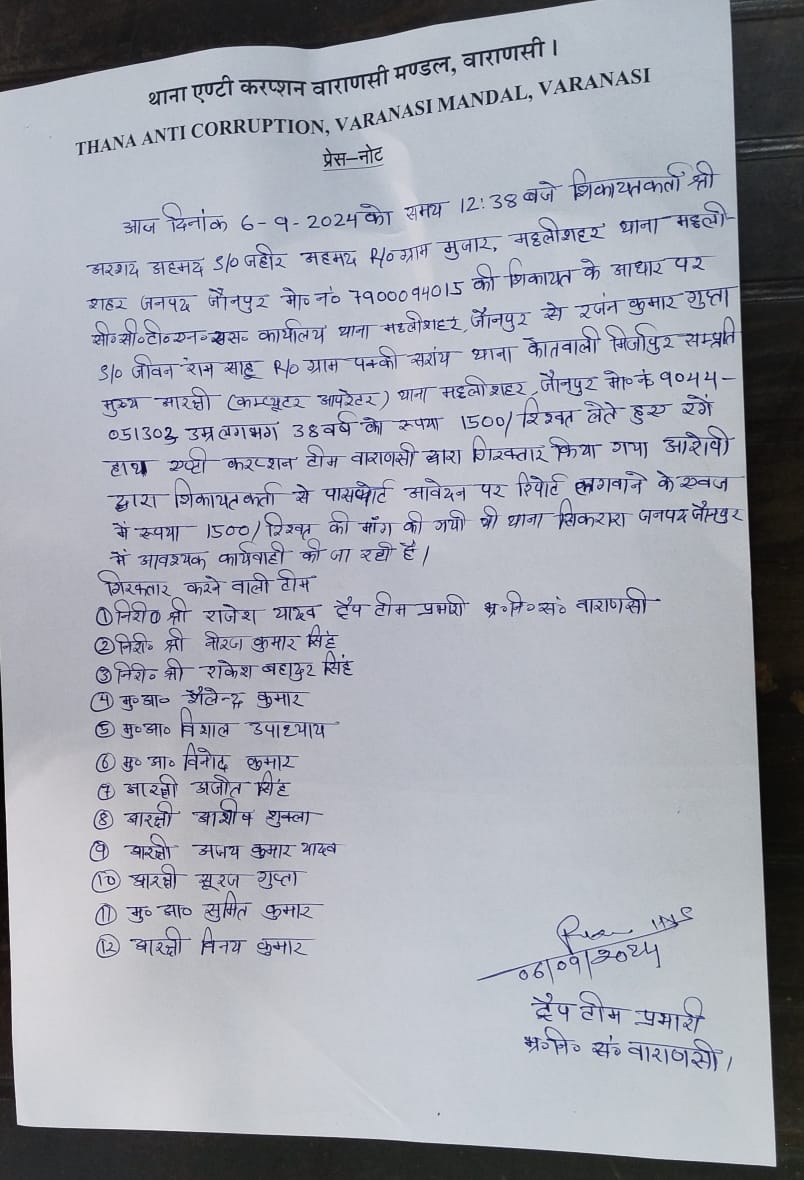 थाना एण्टी करप्शन वाराणसी मण्डल, वाराणसी ।
THANA ANTI CORRUPTION, VARANASI MANDAL, VARANASI
प्रेस–नोट
आज दिनांक 6-9-2024 को समय 12:38 बजे शिकायतकर्ता श्री
अरशद अहमद S/o जहीर अहमद R/o ग्राम मुजार, मछलीशहर थाना मछली-
शहर जनपद जौनपुर मो० नं० 7900094015 की शिकायत के आधार पर
सी०सी०टी०एन०एस० कार्यालय थाना मछलीशहर, जौनपुर से रंजन कुमार गुप्ता
S/o जीवन राम साहू R/o ग्राम पक्की सरांय थाना कोतवाली मिर्जापुर सम्प्रति
मुख्य आरक्षी (कम्प्यूटर आपरेटर) थाना मछलीशहर, जौनपुर मो० नं० 9044-
051303 उम्र लगभग 38 वर्ष को रूपया 1500/ रिश्वत लेते हुए रंगे
हाथ एण्टी करप्शन टीम वाराणसी द्वारा गिरफ्तार किया गया आरोपी
द्वारा शिकायतकर्ता से पासपोर्ट आवेदन पर रिपोर्ट लगवाने के एवज
में रूपया 1500/ रिश्वत की माँग की गयी थी थाना सिकरारा जनपद जौनपुर
में आवश्यक कार्यवाही की जा रही है।
गिरफ्तार करने वाली टीम
① निरी० श्री राजेश यादव ट्रैप टीम प्रभारी भ्र०नि०सं० वाराणसी
② निरी० श्री नीरज कुमार सिंह
③ निरी० श्री राकेश बहादुर सिंह
④ मु०आ० शैलेन्द्र कुमार
⑤ मु०आ० विशाल उपाध्याय
⑥ मु० आ० विनोद कुमार
⑦ आरक्षी अजीत सिंह
⑧ आरक्षी आशीष शुक्ला
⑨ आरक्षी अजय कुमार यादव
⑩ आरक्षी सूरज गुप्ता
⑪ मु० आ० सुमित कुमार
⑫ आरक्षी विनय कुमार
INS
06/09/2024
ट्रैप टीम प्रभारी
भ्र०नि० सं० वाराणसी।